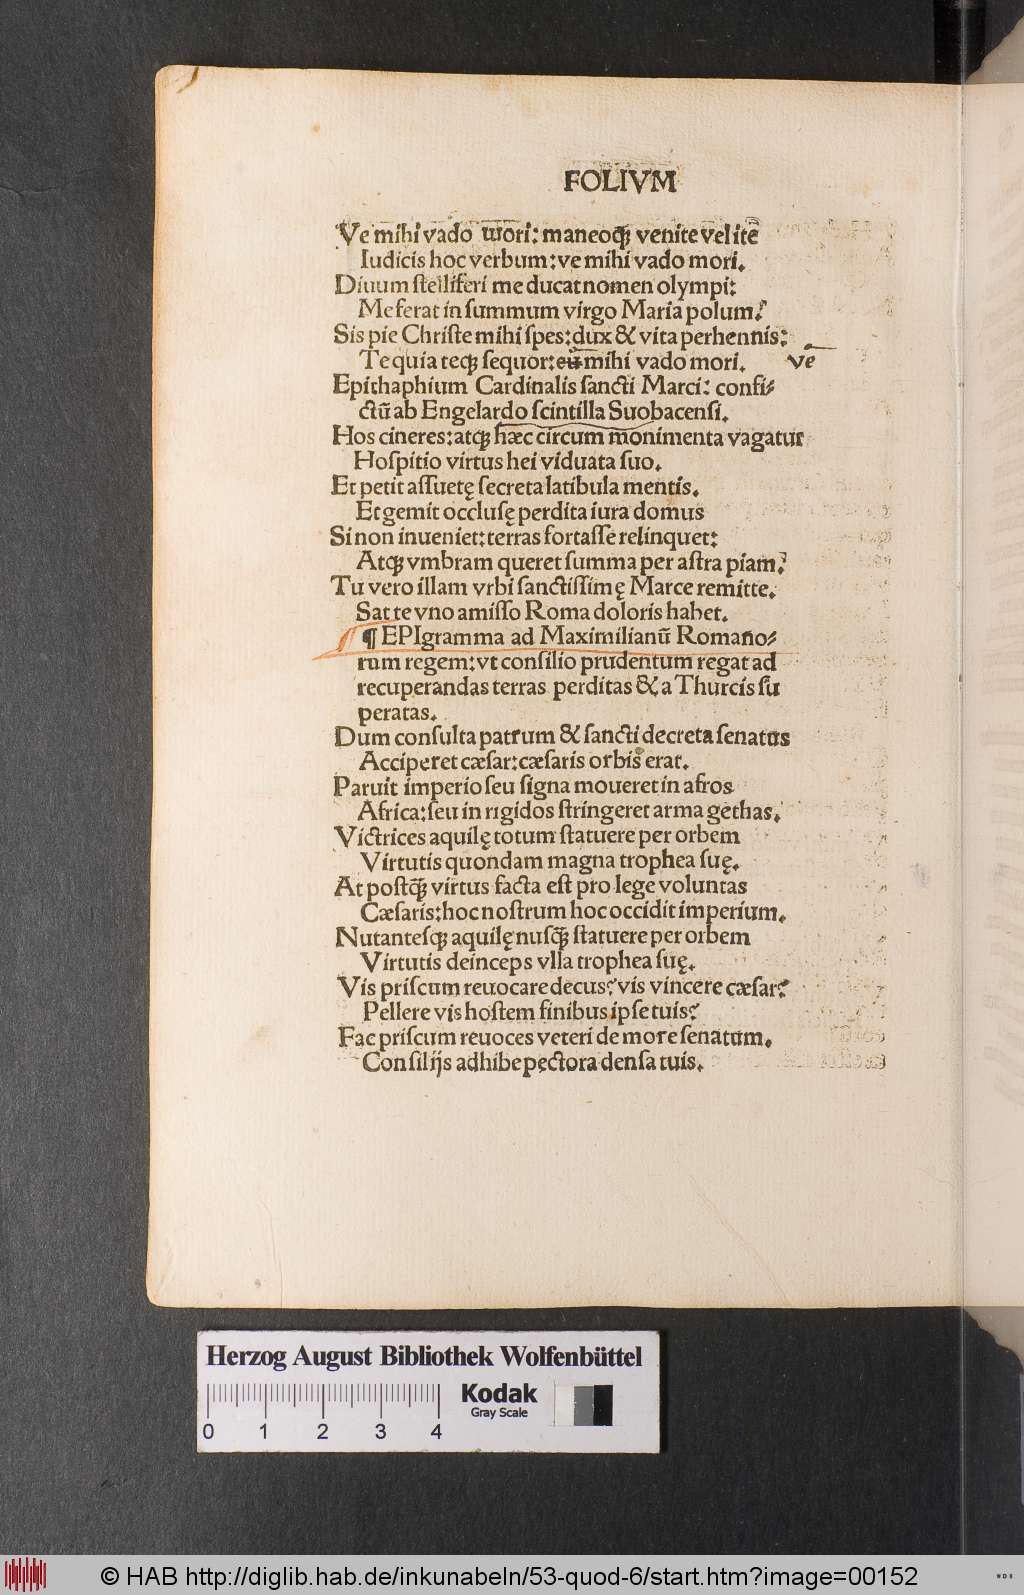 FOLIVM
Ve mihi vado mori: maneoq̃ venite vel itẽ
Iudicis hoc verbum: ve mihi vado mori.
Diuum ſtelliferi me ducat nomen olympi:
Me ferat in ſummum virgo Maria polum?
Sis pie Chriſte mihi ſpes: dux & vita perhennis:
Te quia teqꝫ ſequor: eu mihi vado mori. ve
Epithaphium Cardinalis ſancti Marci: confi⸗
ctũ ab Engelardo ſcintilla Suobacenſi.
Hos cineres: atqꝫ hæc circum monimenta vagatur
Hoſpitio virtus hei viduata ſuo.
Et petit aſſuetę ſecreta latibula mentis.
Et gemit occluſę perdita iura domus
Si non inueniet: terras fortaſſe relinquet:
Atqꝫ vmbram queret ſumma per aſtra piam?
Tu vero illam vrbi ſanctiſſimę Marce remitte.
Sat te vno amiſſo Roma doloris habet.
¶ EPIgramma ad Maximilianũ Romano⸗
rum regem: vt conſilio prudentum regat ad
recuperandas terras perditas & a Thurcis ſu
peratas.
Dum conſulta patrum & ſancti decreta ſenatus
Acciperet cæſar: cæſaris orbis erat.
Paruit imperio ſeu ſigna moueret in afros
Africa: ſeu in rigidos ſtringeret arma gethas.
Victrices aquilę totum ſtatuere per orbem
Virtutis quondam magna trophea ſuę.
At poſtq̃ virtus facta eſt pro lege voluntas
Cæſaris: hoc noſtrum hoc occidit imperium.
Nutanteſqꝫ aquilę nuſq̃ ſtatuere per orbem
Virtutis deinceps vlla trophea ſuę.
Vis priſcum reuocare decus? vis vincere cæſar?
Pellere vis hoſtem finibus ipſe tuis?
Fac priſcum reuoces veteri de more ſenatum.
Conſilijs adhibe pęctora denſa tuis.
Herzog August Bibliothek Wolfenbüttel
Kodak
Gray Scale
0 1 2 3 4
© HAB http://diglib.hab.de/inkunabeln/53-quod-6/start.htm?image=00152